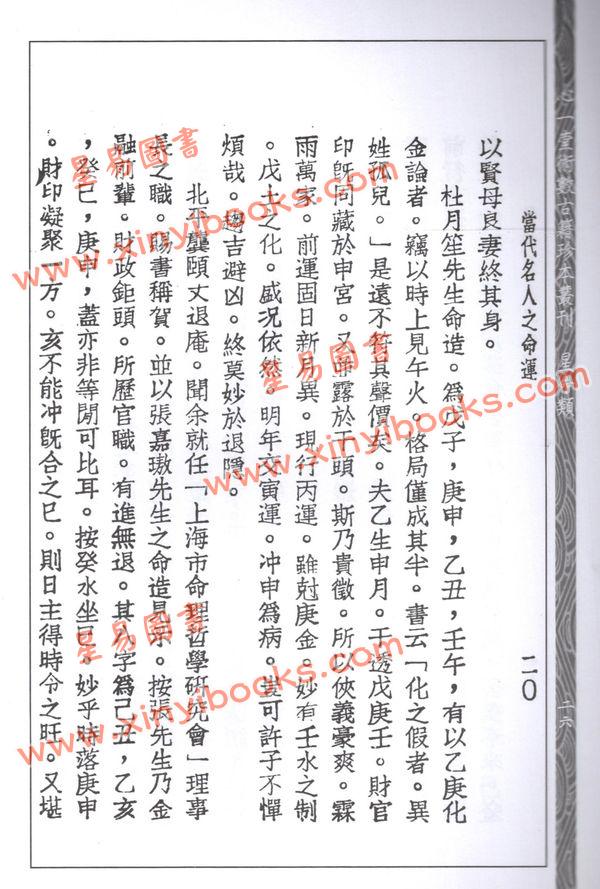 心一堂術數古籍珍本叢刊 星命類
二六
當代名人之命運
二〇
以賢母良妻終其身。
杜月笙先生命造。爲戊子，庚申，乙丑，壬午，有以乙庚化
金論者。竊以時上見午火。格局僅成其半。書云「化之假者。異
姓孤兒。」是遠不符其聲價矣。夫乙生申月。干透戊庚壬。財官
印旣同藏於申宮。又並露於干頭。斯乃貴徵。所以俠義豪爽。霖
雨萬家。前運固日新月異。現行丙運。雖尅庚金。妙有壬水之制
。戊土之化。盛況依然。明年交寅運。冲申爲病。豈可許子不憚
煩哉。趨吉避凶。終莫妙於退隱。
北平龔頤丈退庵。聞余就任「上海市命理哲學研究會」理事
長之職。賜書稱賀。並以張嘉璈先生之命造見示。按張先生乃金
融前輩。財政鉅頭。所歷官職。有進無退。其八字爲己丑，乙亥
，癸巳，庚申，蓋亦非等閒可比耳。按癸水坐巳。妙乎時落庚申
。財印凝聚一方。亥不能冲旣合之巳。則日主得時令之旺。又堪
星易圖書
www.xinyibooks.com
星易圖書
www.xinyibooks.com
星易圖書
www.xinyibooks.com